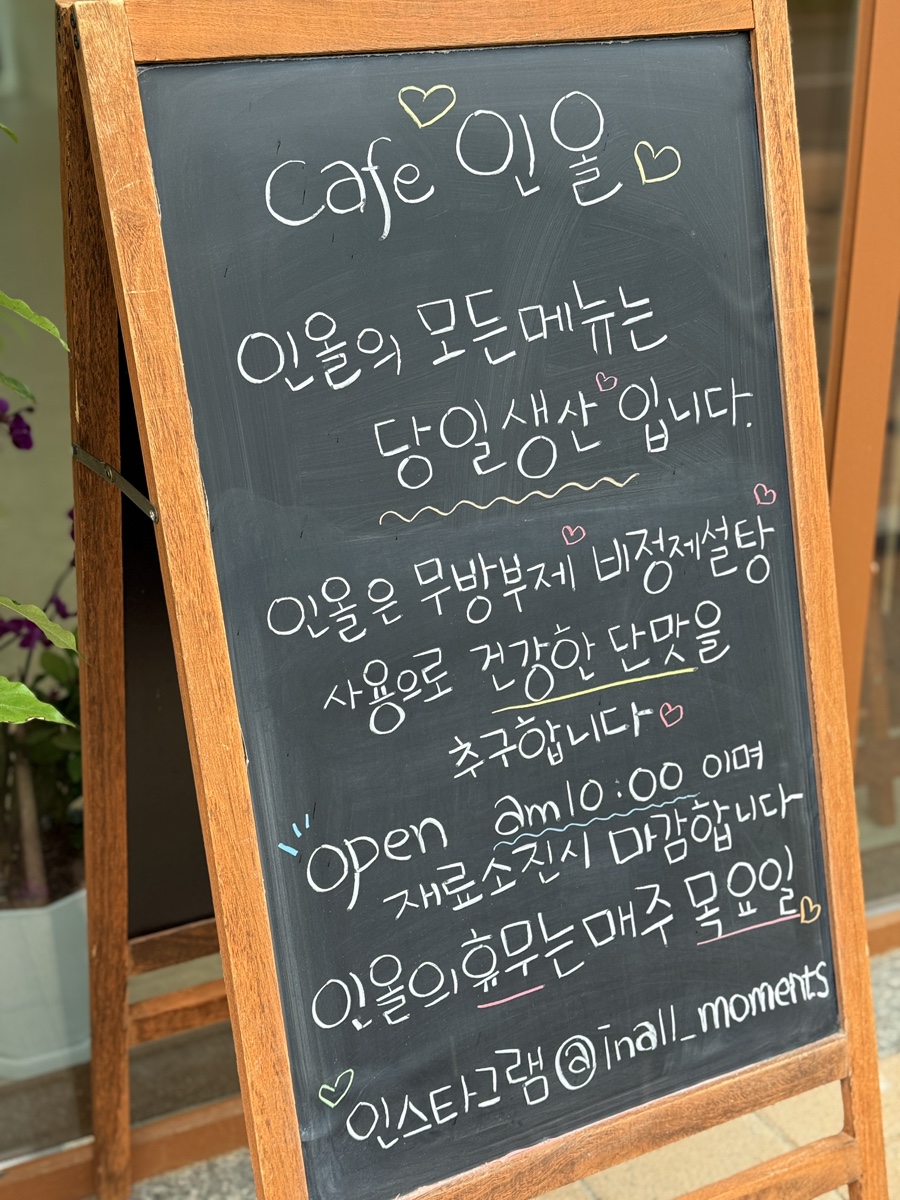 Cafe 인올
인올의 모든메뉴는
당일생산 입니다.
인올은 무방부제 비정제설탕
사용으로 건강한 단맛을
추구합니다
open am10:00 이며
재료소진시 마감합니다
인올의휴무는매주 목요일
인스타그램@inall_moments